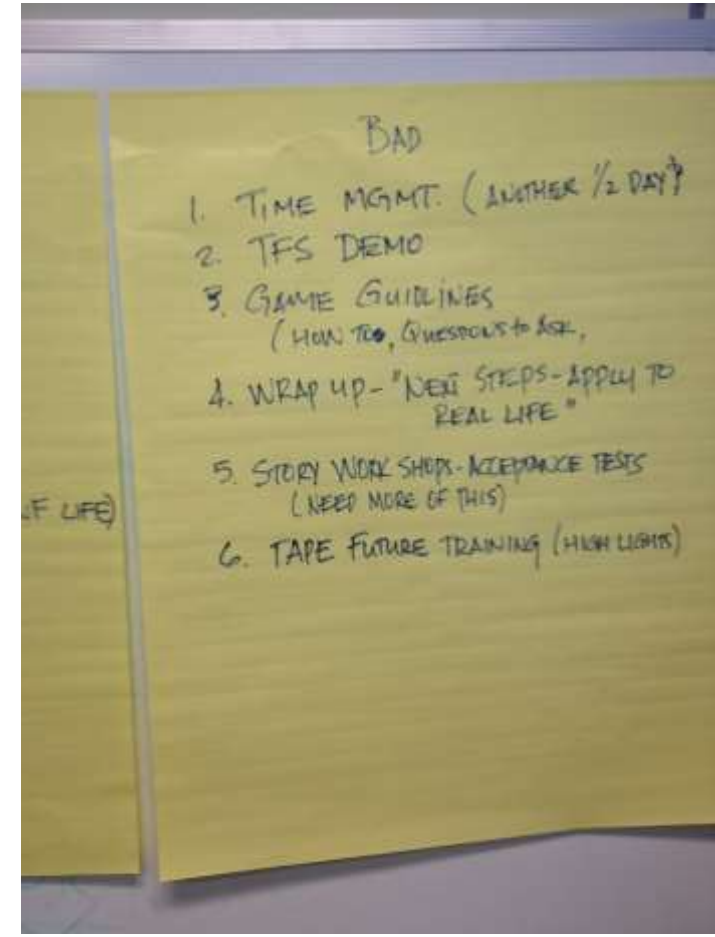 BAD
1. TIME MGMT. (ANOTHER 1/2 DAY?)
2. TFS DEMO
3. GAME GUIDLINES
(HOW TO, QUESTIONS to ASK,
4. WRAP UP - "NEXT STEPS - APPLY TO
REAL LIFE"
5. STORY WORK SHOPS - ACCEPTANCE TESTS
(NEED MORE OF THIS)
LIFE)
6. TAPE FUTURE TRAINING (HIGH LIGHTS)